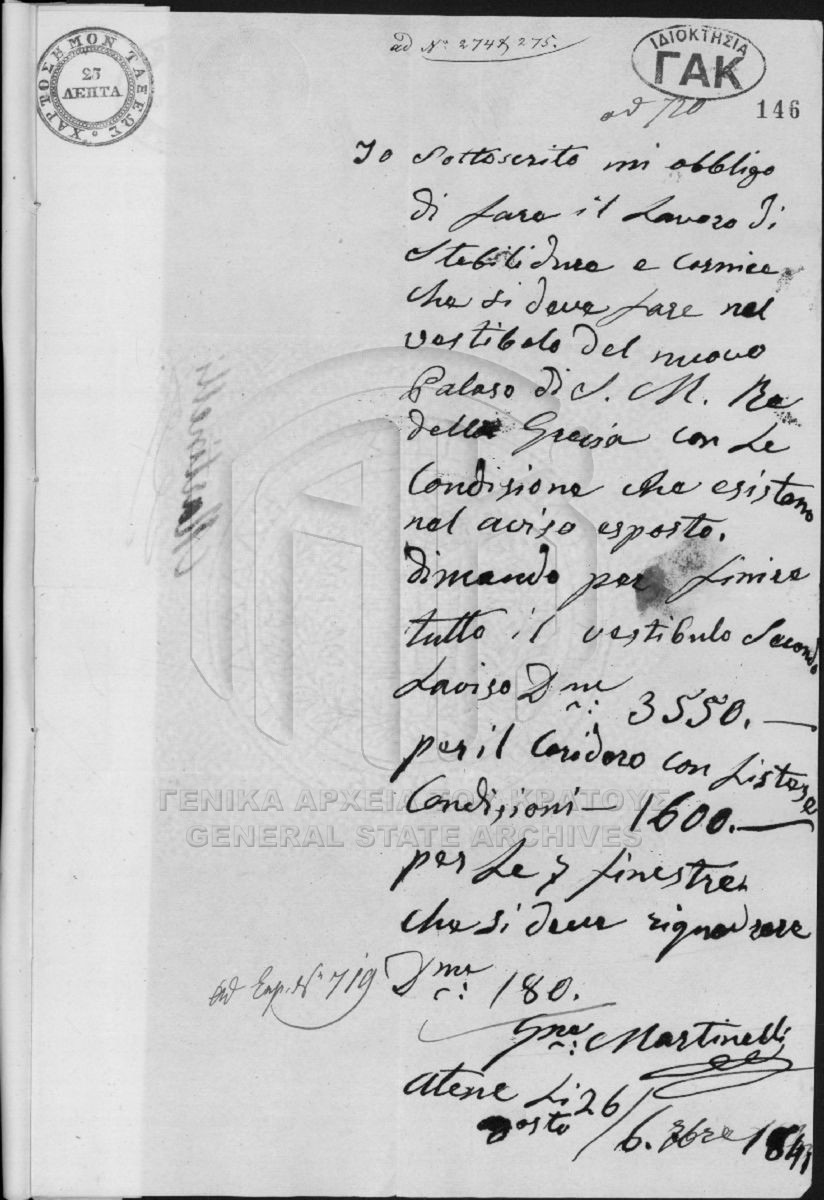 ΧΑΡΤΟΣΗΜΟΝ ΤΑΞΕΩΣ
25
ΛΕΠΤΑ
ad No 274 & 275.
ΙΔΙΟΚΤΗΣΙΑ
ΓΑΚ
ad 720
146
Io Sottoscrito mi obbligo
di fare il Lavoro di
Stabilidura e Cornice
che si deve fare nel
vestibolo del nuovo
Palaso di S. M. Re
della Grecia con Le
Condisione che esistono
nel aviso esposto.
dimando per finire
tutto il vestibulo Secondo
Laviso Dme 3550.—
per il Coridoro con Listese
Condisioni — 1600.—
per Le 7 finestre
che si deve riquadrare
ad Exp. No 719
Dme 180.
Martinelli
Atene Li 26
gosto / 6. 7bre 1841
Martinelli
ΓΕΝΙΚΑ ΑΡΧΕΙΑ ΤΟΥ ΚΡΑΤΟΥΣ
GENERAL STATE ARCHIVES